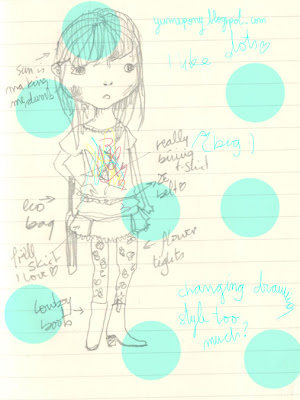 yunmapong.blogspot.com
I like dots
sun is
making
me dumb
really
boring
t-shirt
(big)
belt
eco
bag
frill
skirt
I love
flower
tights
cowboy
boots
changing drawing
style too
much?